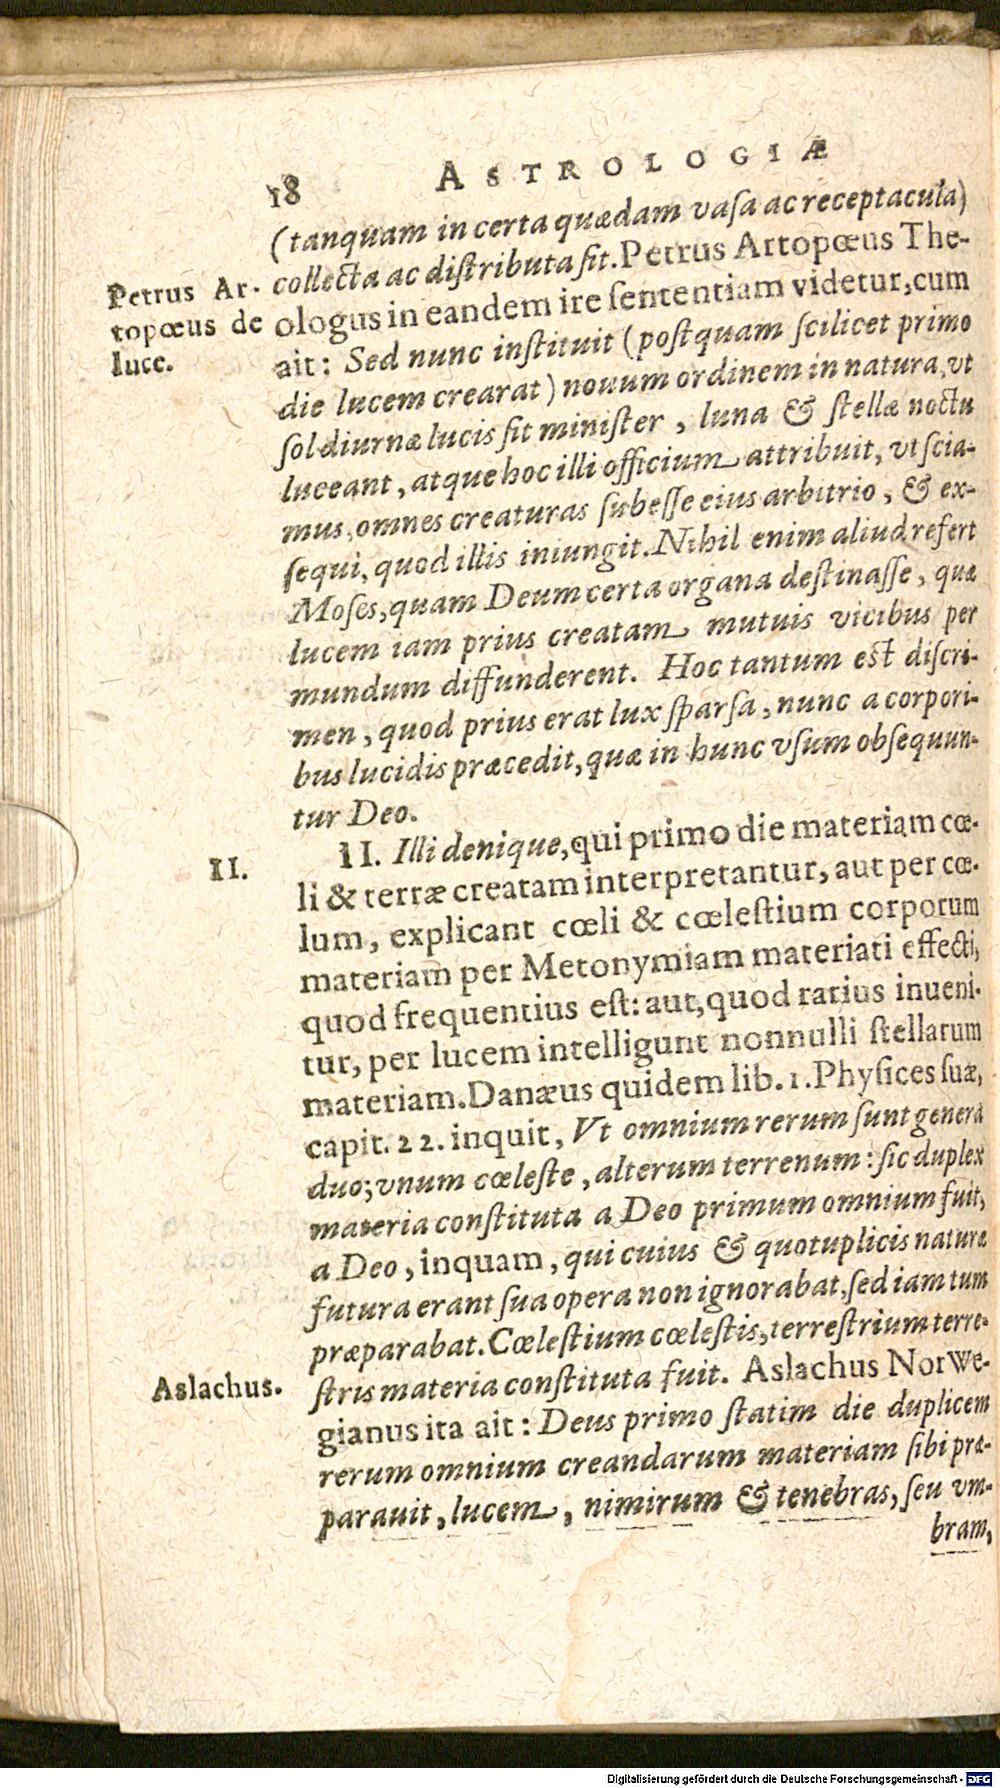 18 ASTROLOGIÆ
(tanquam in certa quædam vaſa ac receptacula)
collecta ac diſtributa ſit. Petrus Artopœus The-
Petrus Ar-
topœus de
luce.
ologus in eandem ire ſententiam videtur, cum
ait: Sed nunc inſtituit (poſtquam ſcilicet primo
die lucem crearat) nouum ordinem in natura, vt
ſol diurnæ lucis ſit miniſter, luna & ſtellæ noctu
luceant, atque hoc illi officium attribuit, vt ſcia-
mus, omnes creaturas ſubeſſe eius arbitrio, & ex-
ſequi, quod illis iniungit. Nihil enim aliud refert
Moſes, quam Deum certa organa deſtinaſſe, quæ
lucem iam prius creatam mutuis vicibus per
mundum diffunderent. Hoc tantum eſt diſcri-
men, quod prius erat lux ſparſa, nunc a corpori-
bus lucidis præcedit, quæ in hunc vſum obſequun-
tur Deo.
II.
II. Illi denique, qui primo die materiam cœ-
li & terræ creatam interpretantur, aut per cœ-
lum, explicant cœli & cœleſtium corporum
materiam per Metonymiam materiati effecti,
quod frequentius eſt: aut, quod rarius inueni-
tur, per lucem intelligunt nonnulli ſtellarum
materiam. Danæus quidem lib. 1. Phyſices ſuæ,
capit. 22. inquit, Vt omnium rerum ſunt genera
duo; vnum cœleſte, alterum terrenum: ſic duplex
materia conſtituta a Deo primum omnium fuit,
a Deo, inquam, qui cuius & quotuplicis naturæ
futura erant ſua opera non ignorabat, ſed iam tum
præparabat. Cœleſtium cœleſtis, terreſtrium terre-
Aslachus.
ſtris materia conſtituta fuit. Aslachus Norwe-
gianus ita ait: Deus primo ſtatim die duplicem
rerum omnium creandarum materiam ſibi præ-
parauit, lucem, nimirum & tenebras, ſeu vm-
bram,
Digitalisierung gefördert durch die Deutsche Forschungsgemeinschaft - DFG